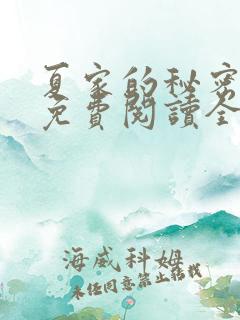 夏家的秘密
免費閱讀全
海威科姆
未经同意禁止转载